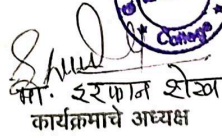 College
प्रा. इरफान शेख
कार्यक्रमाचे अध्यक्ष